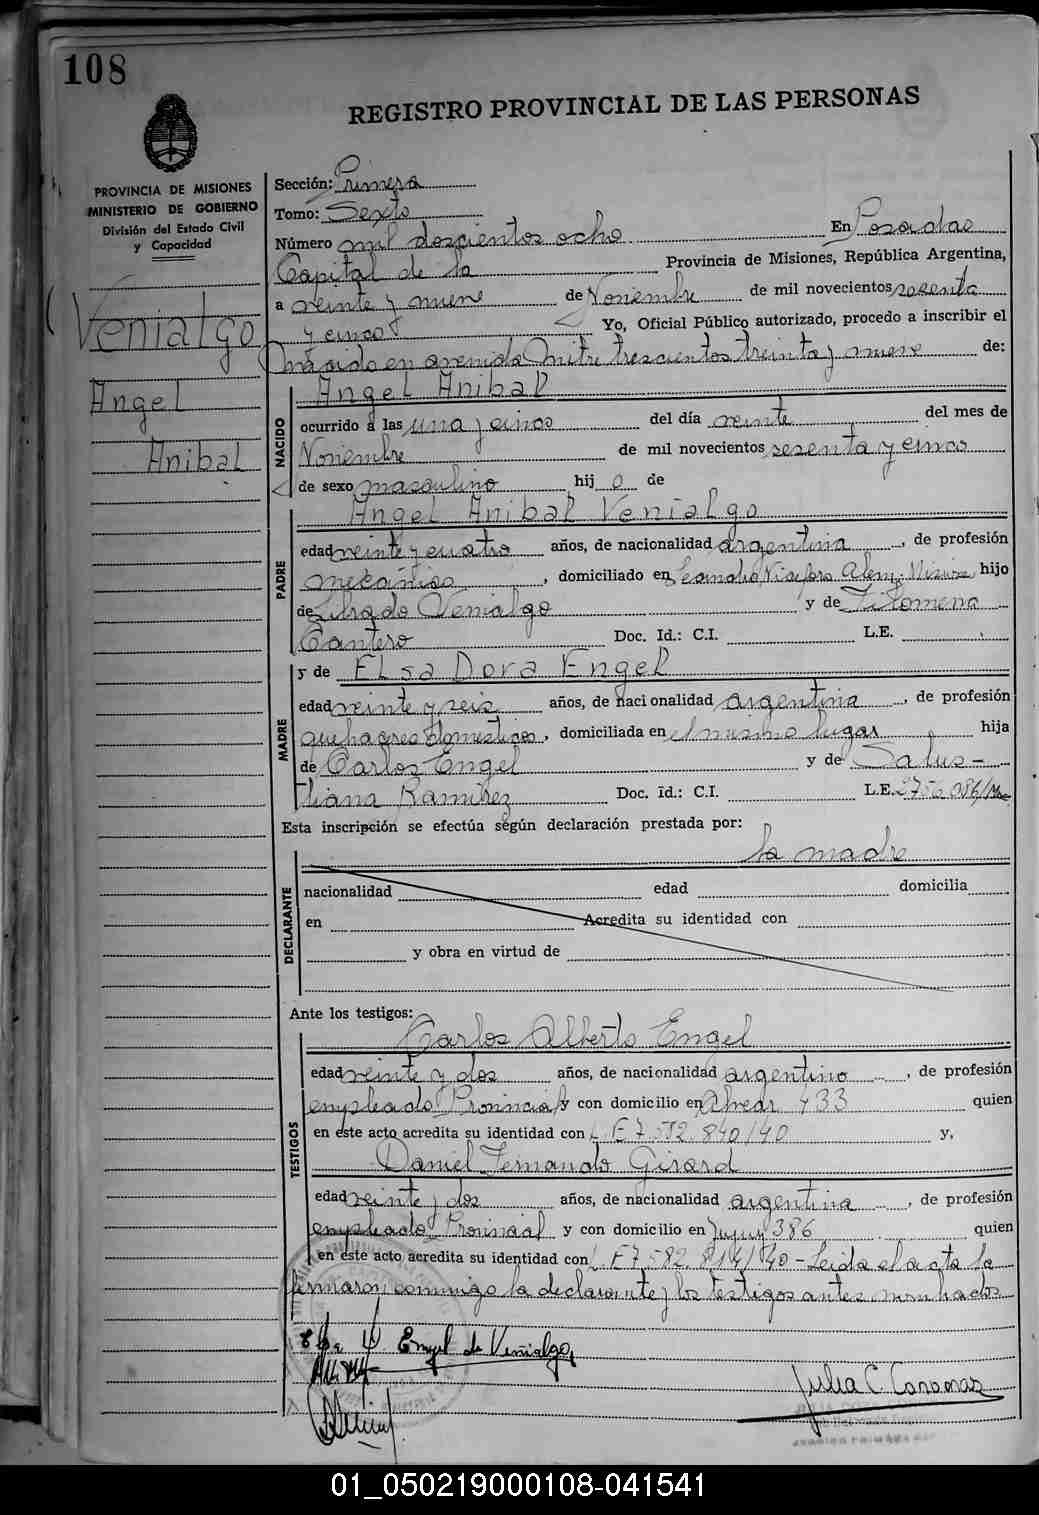 108
REGISTRO PROVINCIAL DE LAS PERSONAS
PROVINCIA DE MISIONES
MINISTERIO DE GOBIERNO
División del Estado Civil
y Capacidad
Venialgo
Angel
Anibal
Sección: Primera
Tomo: Sexto
Número mil doscientos ocho En Posadas
Capital de la Provincia de Misiones, República Argentina,
a veinte y nueve de Noviembre de mil novecientos sesenta
y cinco Yo, Oficial Público autorizado, procedo a inscribir el
nacido en avenida Mitre trescientos treinta y nueve de:
Angel Anibal
NACIDO
ocurrido a las una y cinco del día veinte del mes de
Noviembre de mil novecientos sesenta y cinco
de sexo masculino hij o de
Angel Anibal Venialgo
PADRE
edad veinte y cuatro años, de nacionalidad argentina, de profesión
mecánico, domiciliado en Leandro Niceforo Alem, Misiones hijo
de Venialgo y de Filomena
Cantero Doc. Id.: C.I. L.E.
y de Elsa Dora Engel
MADRE
edad veinte y seis años, de nacionalidad argentina, de profesión
quehaceres domesticos, domiciliada en el mismo lugar hija
de Carlos Engel y de Salus-
tiana Ramirez Doc. Id.: C.I. L.E. 2756086
Esta inscripción se efectúa según declaración prestada por:
la madre
DECLARANTE
nacionalidad edad domicilia
en Acredita su identidad con
y obra en virtud de
Ante los testigos:
Carlos Alberto Engel
TESTIGOS
edad veinte y dos años, de nacionalidad argentino, de profesión
empleado Provincial y con domicilio en Alvear 433 quien
en este acto acredita su identidad con L.E 7.582.840/40 y,
Daniel Fernando Girard
edad veinte y dos años, de nacionalidad argentina, de profesión
empleado Provincial y con domicilio en Jujuy 386 quien
en este acto acredita su identidad con L.E 7.582.814/40 - Leida el acta la
firmaron conmigo la declarante y los testigos antes nombrados
Elsa D. Engel de Venialgo,
Julia C. Coronas
01_050219000108-041541